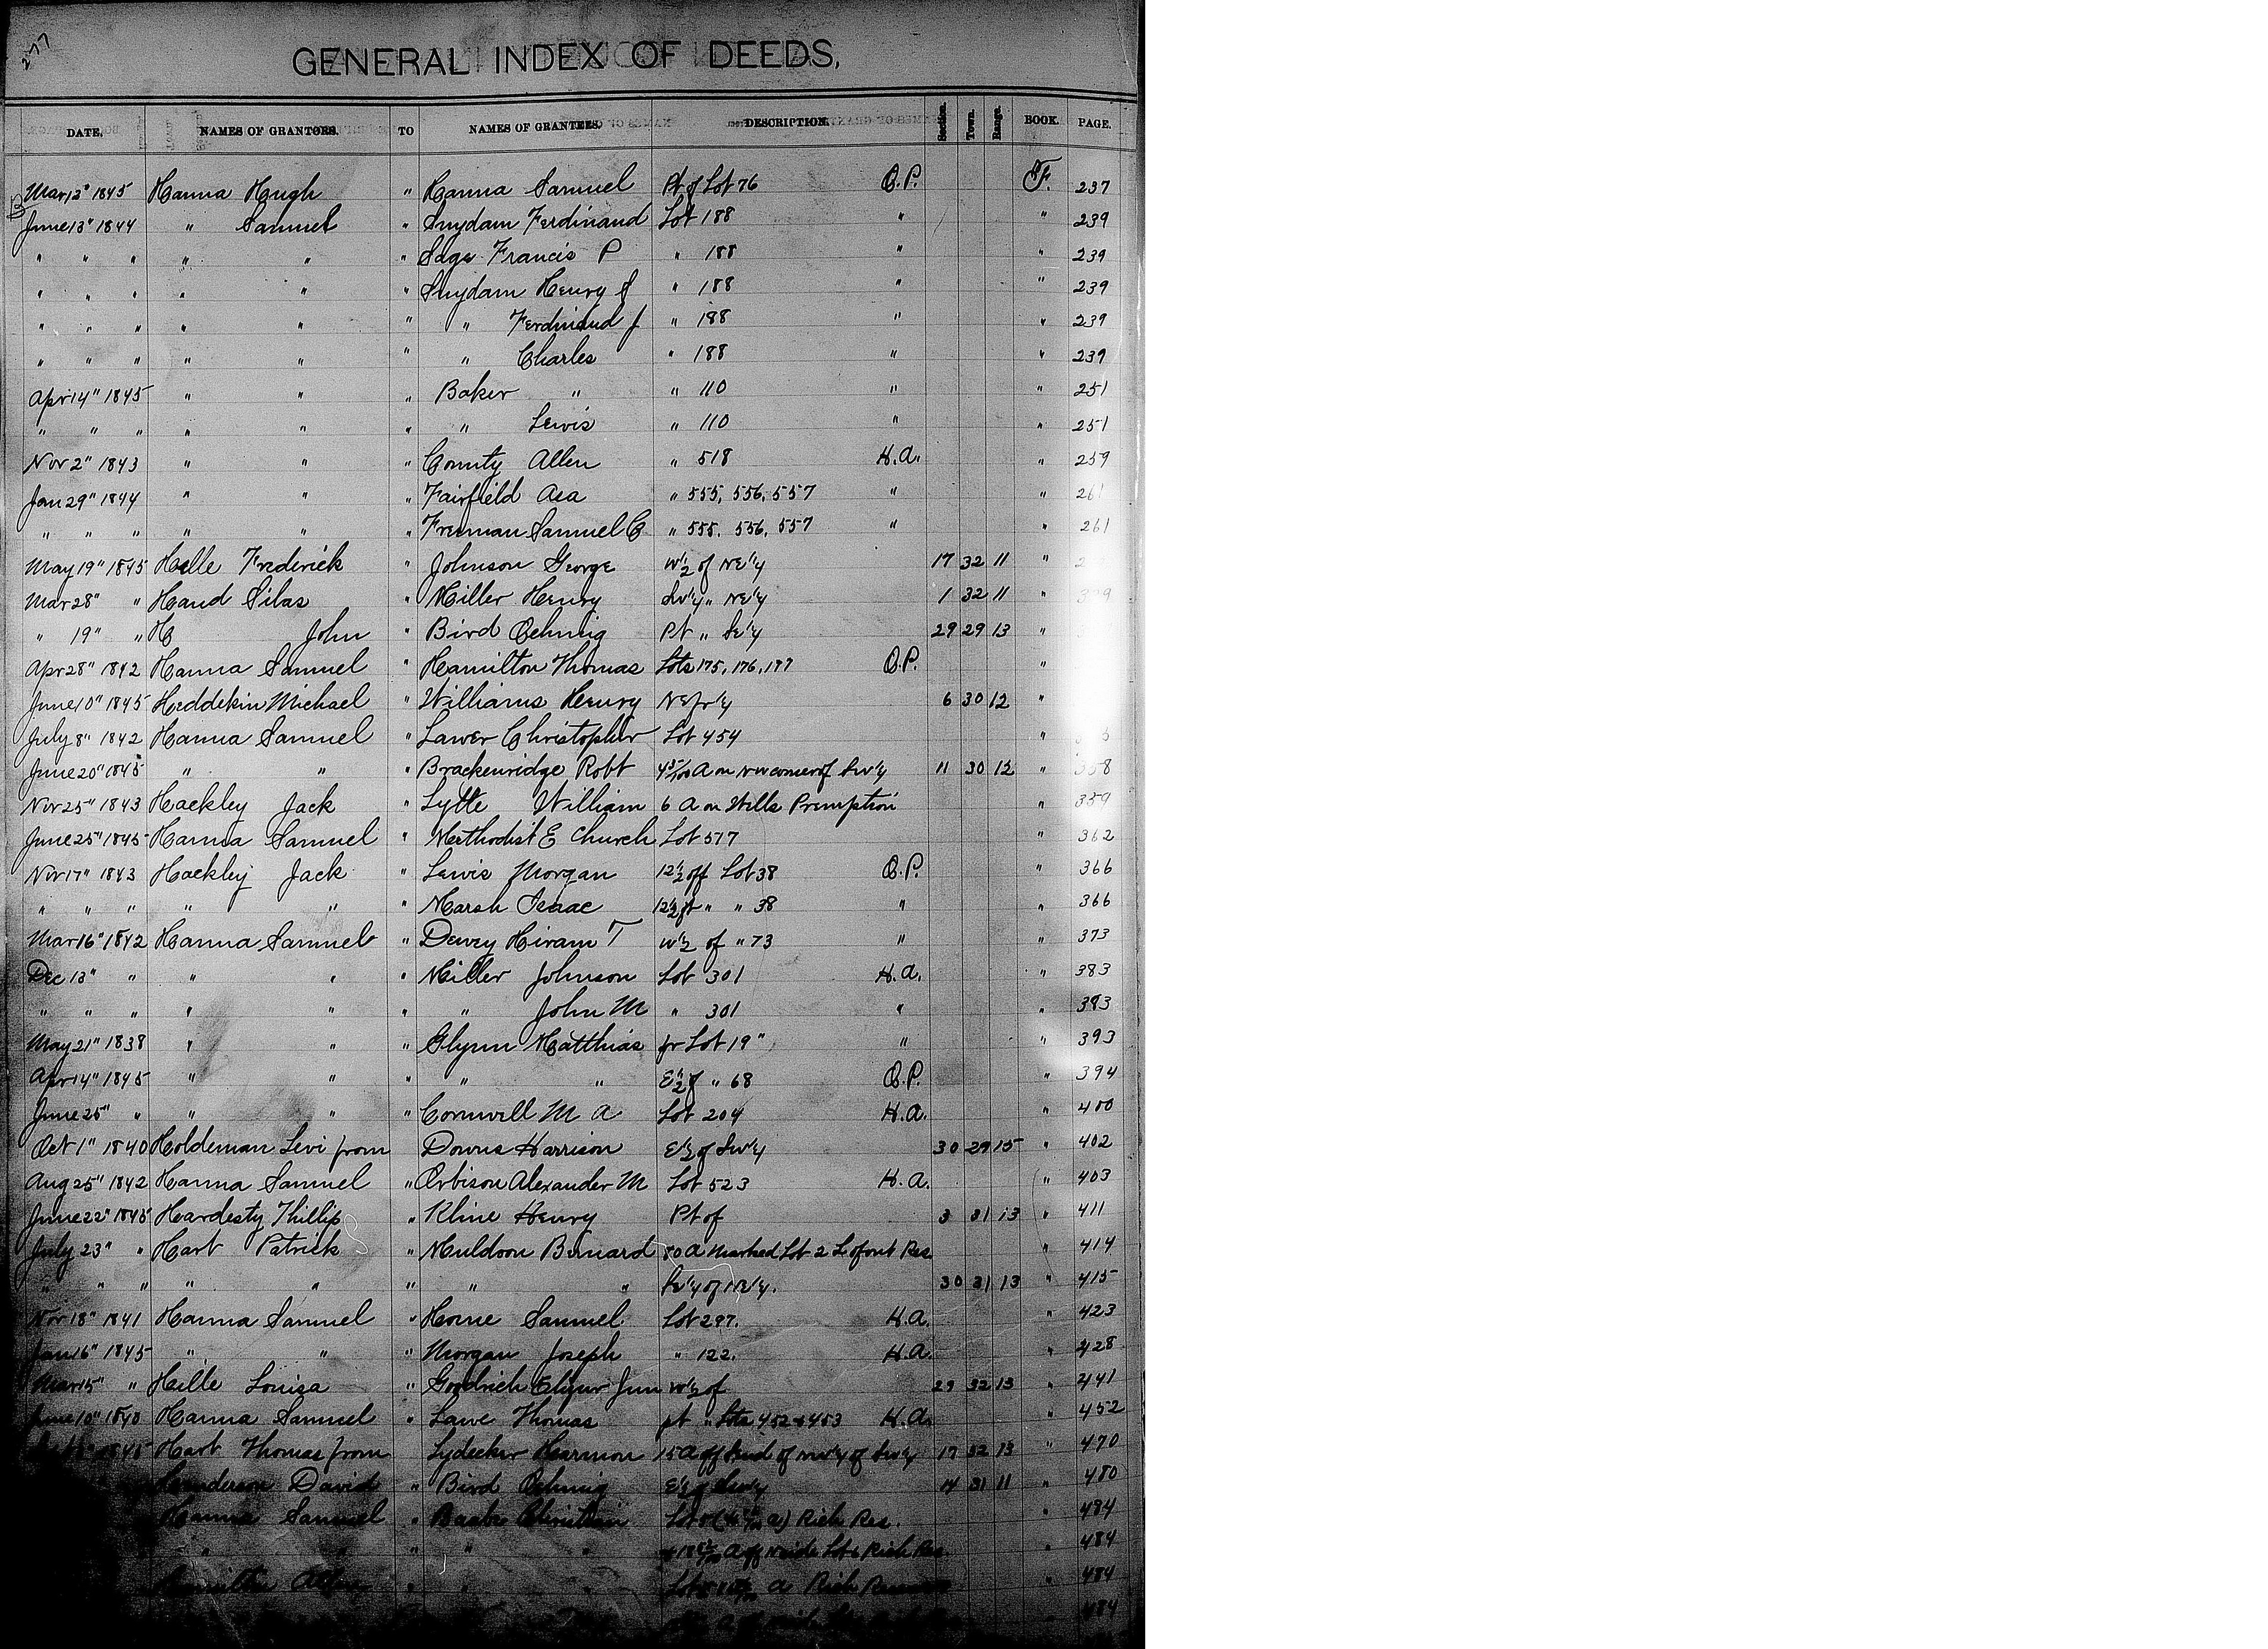 277
GENERAL INDEX OF DEEDS.
DATE. NAMES OF GRANTORS. TO NAMES OF GRANTEES. DESCRIPTION. Section. Town. Range. BOOK. PAGE.
Mar 13" 1845 Hanna Hugh " Hanna Samuel Pt of Lot 76 O.P. F. 237
June 13" 1844 " Samuel " Suydam Ferdinand Lot 188 " " 239
" " " " " " Sage Francis P " 188 " " 239
" " " " " " Suydam Henry S " 188 " " 239
" " " " " " " Ferdinand J " 188 " " 239
" " " " " " " Charles " 188 " " 239
Apr 14" 1845 " " " Baker " " 110 " " 251
" " " " " " " Lewis " 110 " " 251
Nov 2" 1843 " " " County Allen " 518 H.A. " 259
Jan 29" 1844 " " " Fairfield Asa " 555, 556, 557 " " 261
" " " " " " Freeman Samuel C " 555, 556, 557 " " 261
May 19" 1845 Hille Frederick " Johnson George W 1/2 of NE 1/4 17 32 11 "
Mar 28" " Hand Silas " Miller Henry SW 1/4 " NE 1/4 1 32 11 "
" 19" " H John " Bird Ochmig Pt " SE 1/4 29 29 13 "
Apr 28" 1842 Hanna Samuel " Hamilton Thomas Lots 175, 176, 177 O.P. "
June 10" 1845 Heddekin Michael " Williams Henry NE fr 1/4 6 30 12 "
July 8" 1842 Hanna Samuel " Lawer Christopher Lot 454 "
June 20" 1845 " " " Brackenridge Robt 4 5/100 A on NW corner of SW 1/4 11 30 12 " 358
Nov 25" 1843 Hackley Jack " Lytle William 6 A on Wells Premption " 359
June 25" 1845 Hanna Samuel " Methodist E Church Lot 517 " 362
Nov 17" 1843 Hackley Jack " Lewis Morgan 12 1/2 off Lot 38 O.P. " 366
" " " " " " Marsh Isaac 12 1/2 ft " " 38 " " 366
Mar 16" 1842 Hanna Samuel " Dewey Hiram T W 1/2 of " 73 " " 373
Dec 13" " " " " Miller Johnson Lot 301 H.A. " 383
" " " " " " " John M " 301 " " 383
May 21" 1838 " " " Glynn Matthias fr Lot 19" " " 393
Apr 14" 1845 " " " " " E 1/2 of " 68 O.P. " 394
June 25" " " " " Cornwell M A Lot 204 H.A. " 400
Oct 1" 1840 Holdeman Levi from Downs Harrison E 1/2 of SW 1/4 30 29 15 " 402
Aug 25" 1842 Hanna Samuel " Orbison Alexander M Lot 523 H.A. " 403
June 22" 1845 Hardesty Phillip " Kline Henry Pt of 3 31 13 " 411
July 23" " Hart Patrick " Muldoon Bernard 80 A marked Lot 2 Lafont Res. " 414
" " " " " " " " SE 1/4 of NE 1/4. 30 31 13 " 415
Nov 18" 1841 Hanna Samuel " Horne Samuel Lot 297. H.A. " 423
Jan 16" 1845 " " " Morgan Joseph " 122. H.A. " 428
Mar 15" " Hille Louisa " Goodrich Elizur Jun W 1/2 of 29 32 13 " 441
June 10" 1840 Hanna Samuel " Lawe Thomas pt " Lots 452 & 453 H.A. " 452
1845 Hart Thomas from Lydecker Harmon 15 A off S end of NW 1/4 of SW 1/4 17 32 13 " 470
Henderson David " Bird Ochmig E 1/2 of SW 1/4 14 31 11 " 480
Hanna Samuel " Baabe Christian Lot Rich Res. " 484
" " " " " A off N side Lot 6 Rich Res. " 484
Hamilton Allen " " " Lot A Rich " 484
484